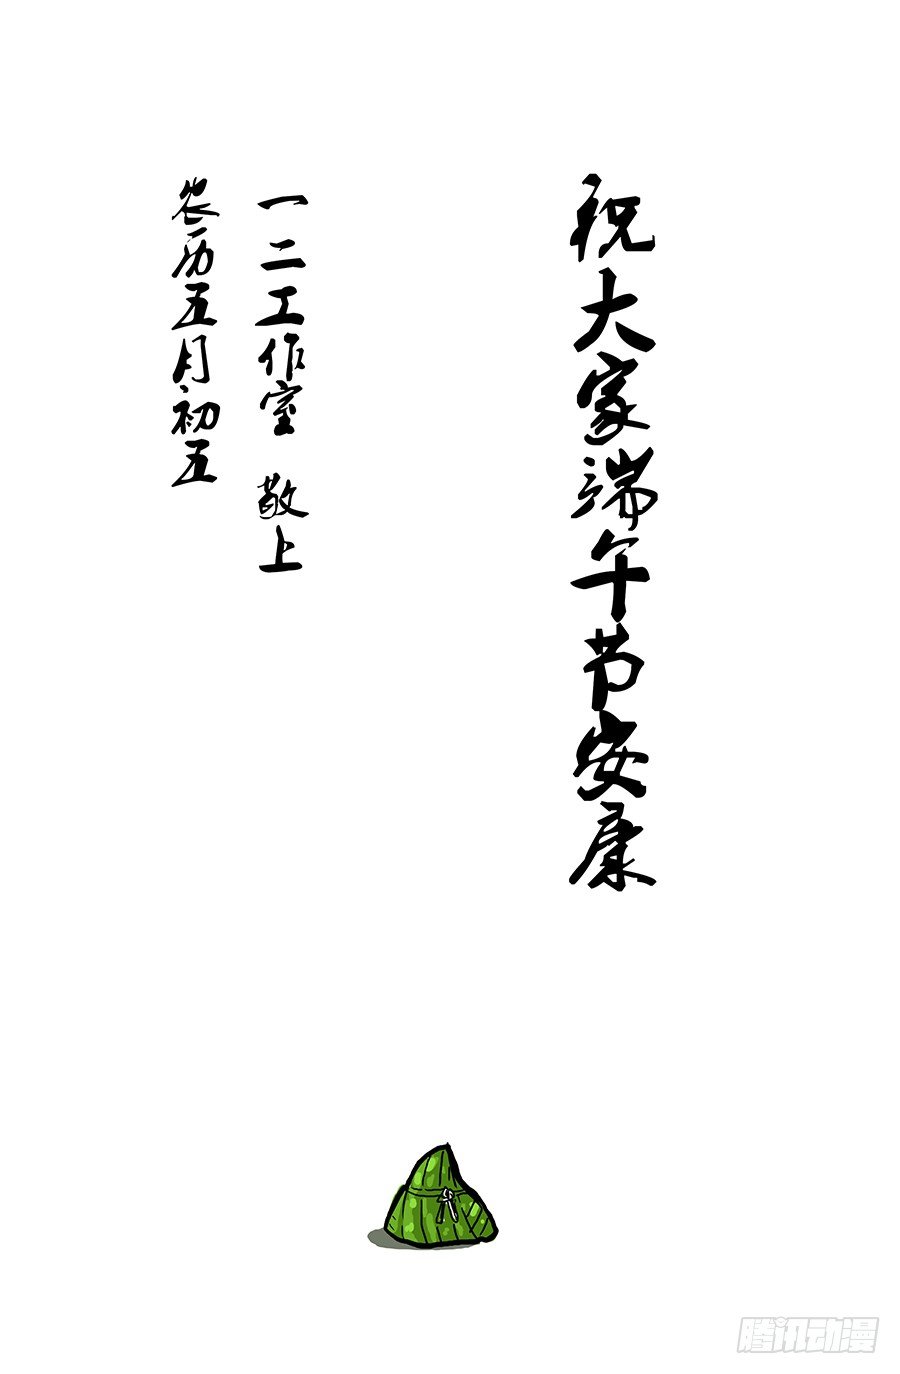 祝大家端午节安康
一二工作室 敬上
农历五月初五
腾讯动漫